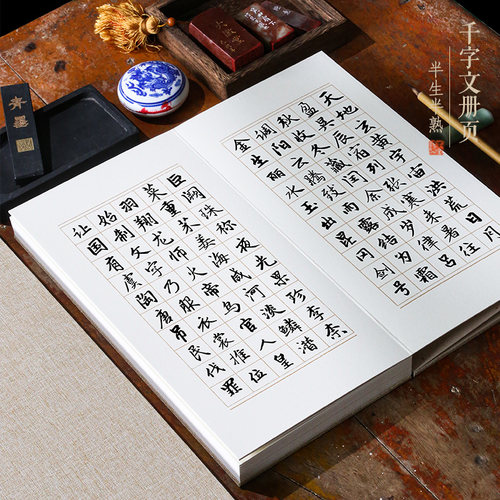 千字文册页
半生半熟
天地玄黄宇宙洪荒日月
盈昃辰宿列张寒来暑往
秋收冬藏闰余成岁律吕
调阳云腾致雨露结为霜
金生丽水玉出昆冈剑号
巨阙珠称夜光果珍李柰
菜重芥姜海咸河淡鳞潜
羽翔龙师火帝鸟官人皇
始制文字乃服衣裳推位
让国有虞陶唐吊民伐罪